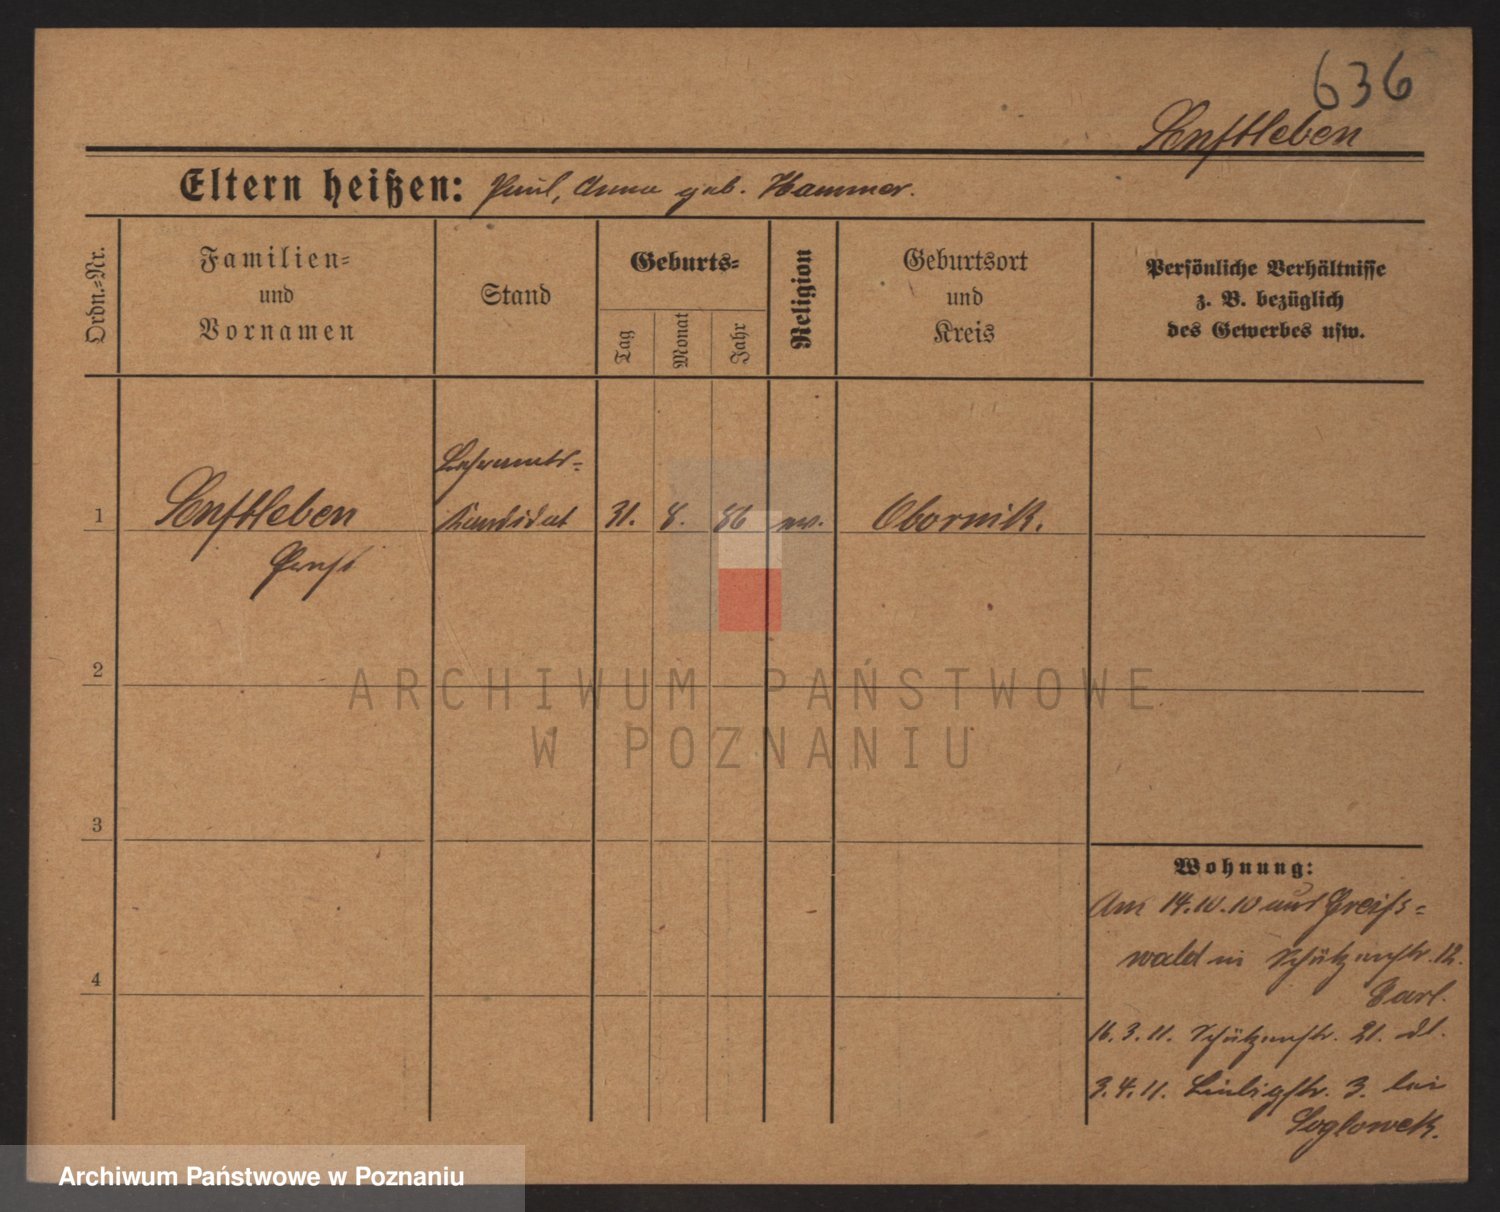 636
Senftleben
Eltern heißen: Paul, Anna geb. Hammer.
Ordn.=Nr.
Familien=
und
Vornamen
Stand
Geburts=
Tag
Monat
Jahr
Religion
Geburtsort
und
Kreis
Persönliche Verhältnisse
z. B. bezüglich
des Gewerbes usw.
Lehramts=
1 Senftleben Kandidat 31. 8. 86 ev. Obornik.
Ernst
2
3
4
Wohnung:
Am 14.10.10 aus Greifs=
wald in Schützenstr. 12.
16.3.11. Schützenstr. 21.
3.4.11. Liebigstr. 3. bei
ARCHIWUM PAŃSTWOWE
W POZNANIU
Archiwum Państwowe w Poznaniu